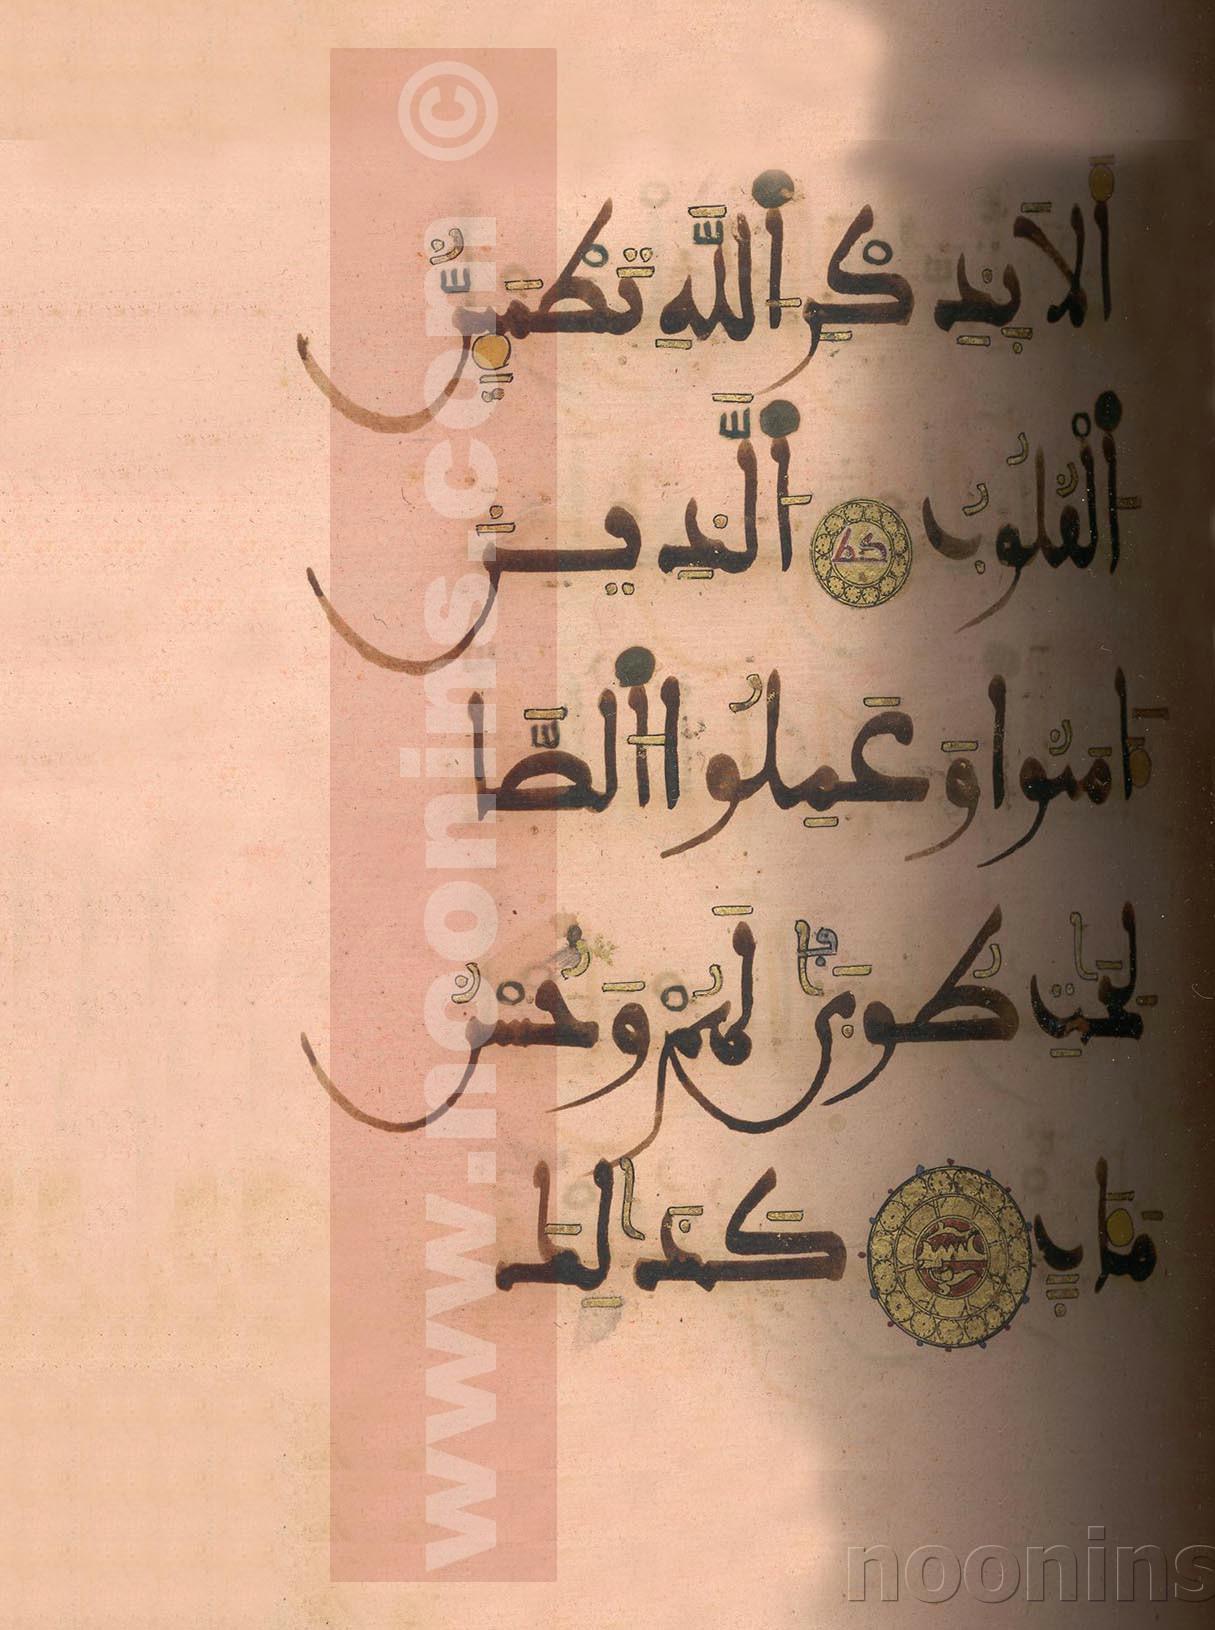 أَلَا بِذِكْرِ اللَّهِ تَطْمَئِنُّ
الْقُلُوبُ كط الَّذِينَ
ءَامَنُوا وَعَمِلُوا الصَّا
لِحَاتِ طُوبَىٰ لَهُمْ وَحُسْنُ
مَـَٔابٍ كَذَٰلِكَ
www.noonins.com ©
noonins